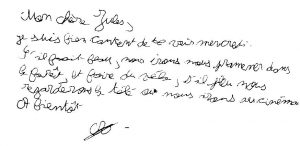 Mon chère Jules,
je suis bien content de te voir mercredi.
S'il fait beau, nous irons nous promener dans
la forêt, et faire du vélo, s'il pleu nous
regarderons la télé ou nous irons au cinéma
A bientôt